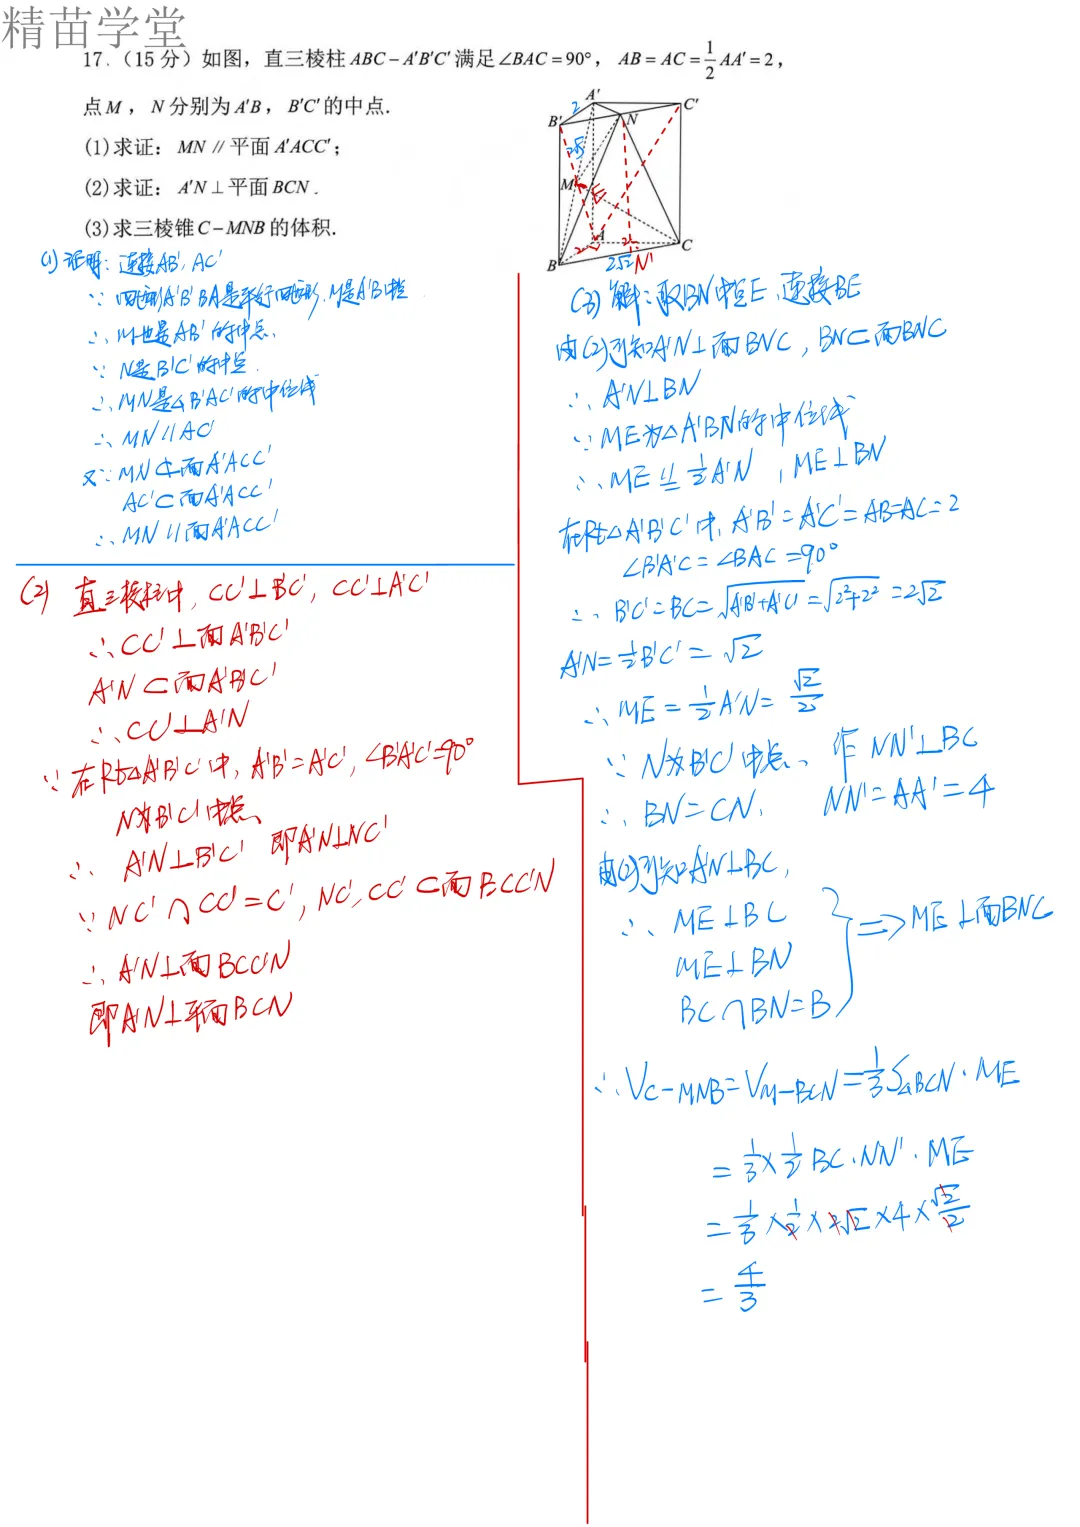 精苗学堂
17.(15分)如图，直三棱柱 ABC－A′B′C′ 满足∠BAC=90°，AB=AC=\frac{1}{2}AA′=2，
点M，N分别为A′B，B′C′的中点.
(1)求证：MN∥平面A′ACC′；
(2)求证：A′N⊥平面BCN.
(3)求三棱锥C－MNB的体积.
A′
B′
C′
N
M
E
A
B
C
N′
2
2
2
2√2
(1)证明：连接AB′, AC′
∵ 四边形A′B′BA是平行四边形，M是A′B中点
∴ M也是AB′的中点.
∵ N是B′C′的中点.
∴ MN是△B′AC′的中位线
∴ MN∥AC′
又∵ MN⊄面A′ACC′
AC′⊂面A′ACC′
∴ MN∥面A′ACC′
(2) 直三棱柱中, CC′⊥B′C′, CC′⊥A′C′
∴ CC′⊥面A′B′C′
A′N⊂面A′B′C′
∴ CC′⊥A′N
∵ 在Rt△A′B′C′中, A′B′=A′C′, ∠B′A′C′=90°
N为B′C′中点
∴ A′N⊥B′C′ 即A′N⊥NC′
∵ NC′∩CC′=C′, NC′, CC′⊂面BCC′N
∴ A′N⊥面BCC′N
即A′N⊥平面BCN
(3) 解：取BN中点E, 连接BE
由(2)可知A′N⊥面BNC, BN⊂面BNC
∴ A′N⊥BN
∵ ME为△A′BN的中位线
∴ ME ∥= \frac{1}{2}A′N , ME⊥BN
在Rt△A′B′C′中, A′B′=A′C′=AB=AC=2
∠B′A′C=∠BAC=90°
∴ B′C′=BC=√(A′B′+A′C′)=√(2²+2²)=2√2
A′N=\frac{1}{2}B′C′=√2
∴ ME=\frac{1}{2}A′N=\frac{√2}{2}
∵ N为B′C′中点、作NN′⊥BC
∴ BN=CN. NN′=AA′=4
由(2)可知A′N⊥BC,
∴ ME⊥BC
ME⊥BN
BC∩BN=B
⇒ ME⊥面BNC
∴ V_{C-MNB}=V_{M-BCN}=\frac{1}{3}S_{△BCN}·ME
=\frac{1}{3}×\frac{1}{2}BC·NN′·ME
=\frac{1}{3}×\frac{1}{2}×2√2×4×\frac{√2}{2}
=\frac{4}{3}